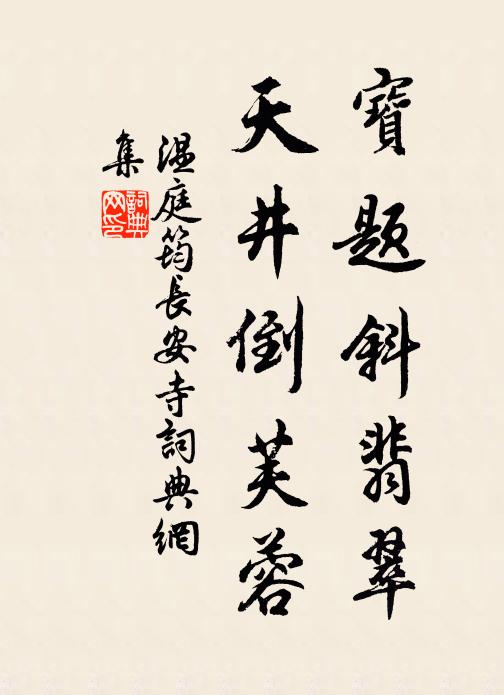 寶題斜翡翠
天井倒芙蓉
溫庭筠長安寺詞典網
集
詞典網印